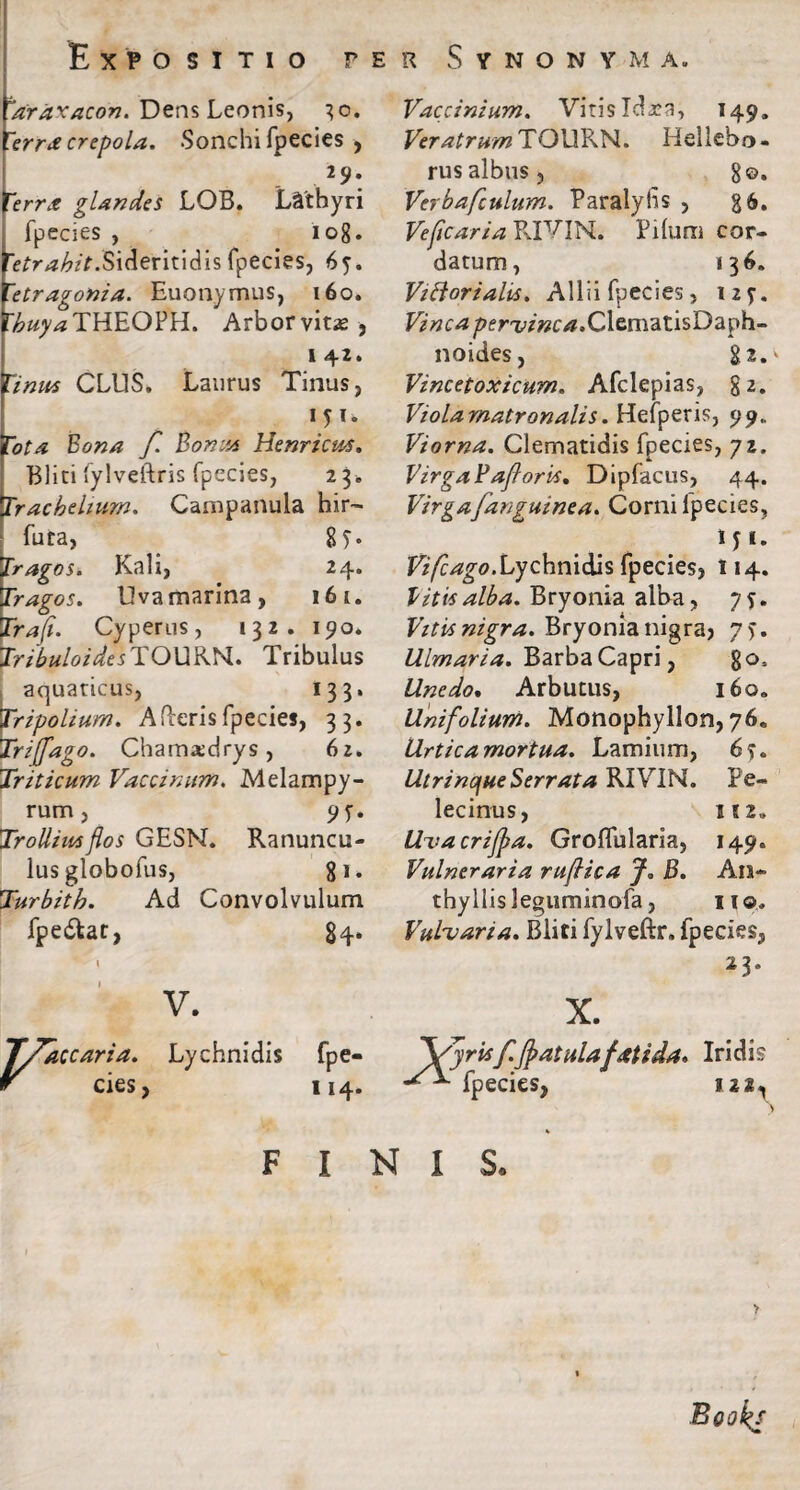 EXPOSITIO PER SYNONYMA.
Taraxacon. Dens Leonis, 30.
Terræ crepola. Sonchi ſpecies,
29.
Terræ glandes LOB. Lathyri
ſpecies, 108.
Tetrahit. Sideritidis ſpecies, 65.
Tetragonia. Euonymus, 160.
Thuya THEOPH. Arbor vitæ,
142.
Tinus CLUS. Laurus Tinus,
151.
Tota Bona ſ. Bonus Henricus.
Bliti ſylveſtris ſpecies, 23.
Trachelium. Campanula hir-
ſuta, 85.
Tragos. Kali, 24.
Tragos. Uva marina, 161.
Traſi. Cyperus, 132. 190.
Tribuloides TOURN. Tribulus
aquaticus, 133.
Tripolium. Aſteris ſpecies, 33.
Triſſago. Chamædrys, 62.
Triticum Vaccinum. Melampy-
rum, 95.
Trollius flos GESN. Ranuncu-
lus globoſus, 81.
Turbith. Ad Convolvulum
ſpectat, 84.
V.
Vaccaria. Lychnidis ſpe-
cies, 114.
Vaccinium. Vitis Idæa, 149.
Veratrum TOURN. Hellebo-
rus albus, 80.
Verbaſculum. Paralyſis, 86.
Veſicaria RIVIN. Piſum cor-
datum, 136.
Victorialis. Allii ſpecies, 125.
Vinca pervinca. Clematis Daph-
noides, 82.
Vincetoxicum. Aſclepias, 82.
Viola matronalis. Heſperis, 99.
Viorna. Clematidis ſpecies, 72.
Virga Paſtoris. Dipſacus, 44.
Virga ſanguinea. Corni ſpecies,
151.
Viſcago. Lychnidis ſpecies, 114.
Vitis alba. Bryonia alba, 75.
Vitis nigra. Bryonia nigra, 75.
Ulmaria. Barba Capri, 80.
Unedo. Arbutus, 160.
Unifolium. Monophyllon, 76.
Urtica mortua. Lamium, 65.
Utrinque Serrata RIVIN. Pe-
lecinus, 112.
Uva criſpa. Groſſularia, 149.
Vulneraria ruſtica J. B. An-
thyllis leguminoſa, 110.
Vulvaria. Bliti ſylveſtr. ſpecies,
23.
X.
Xyris ſ. ſpatula fætida. Iridis
ſpecies, 122.
FINIS.
Books